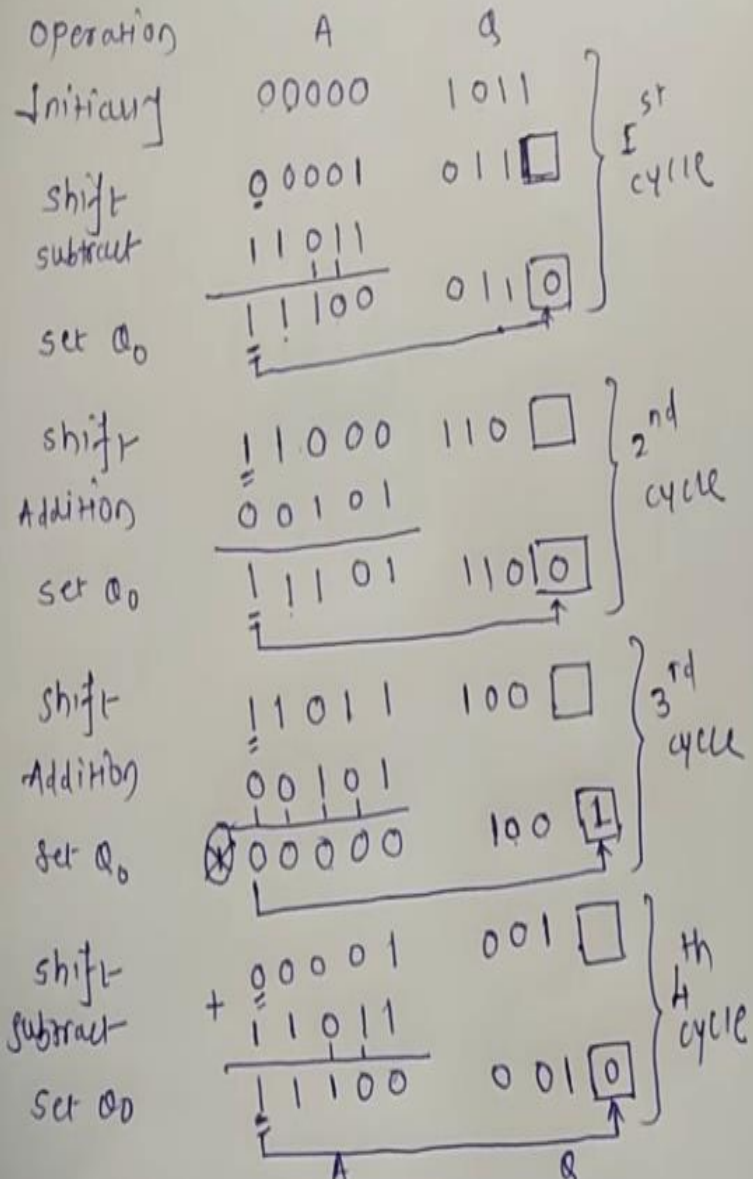 Operation A Q
Initially 00000 1011
shift 00001 011 1st cycle
subtract 11011
set Q0 11100 011 0
shift 11000 110 2nd cycle
Addition 00101
set Q0 11101 110 0
shift 11011 100 3rd cycle
Addition 00101
set Q0 00000 100 1
shift 00001 001 4th cycle
subtract + 11011
set Q0 11100 001 0
A Q